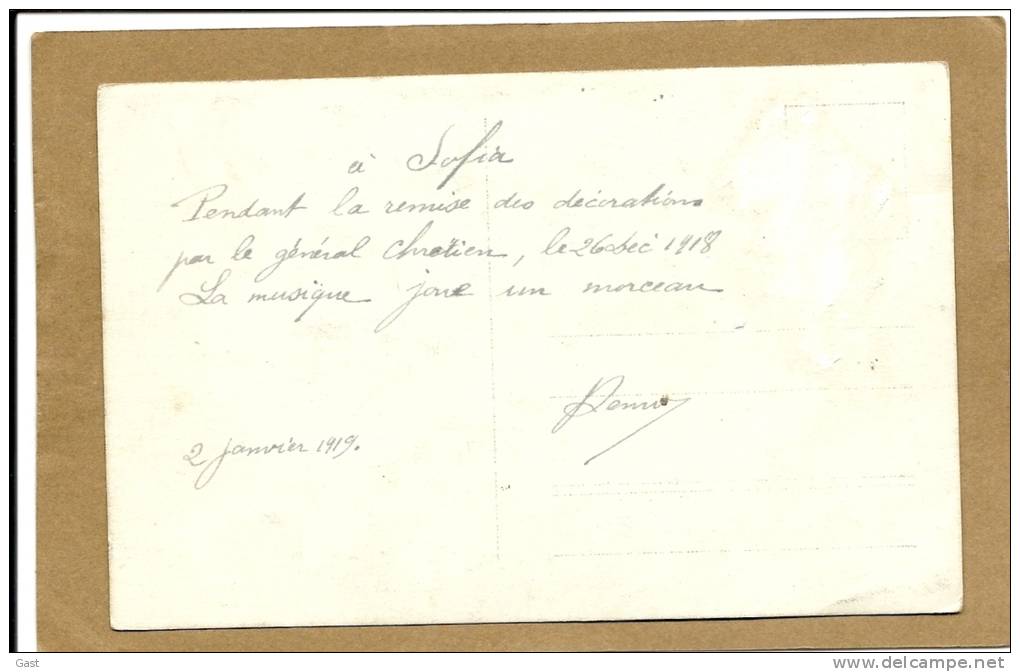 à Sofia
Pendant la remise des décorations
par le général Chrétien, le 26 Déc 1918
La musique joue un morceau
2 janvier 1919.
Gast
www.delcampe.net